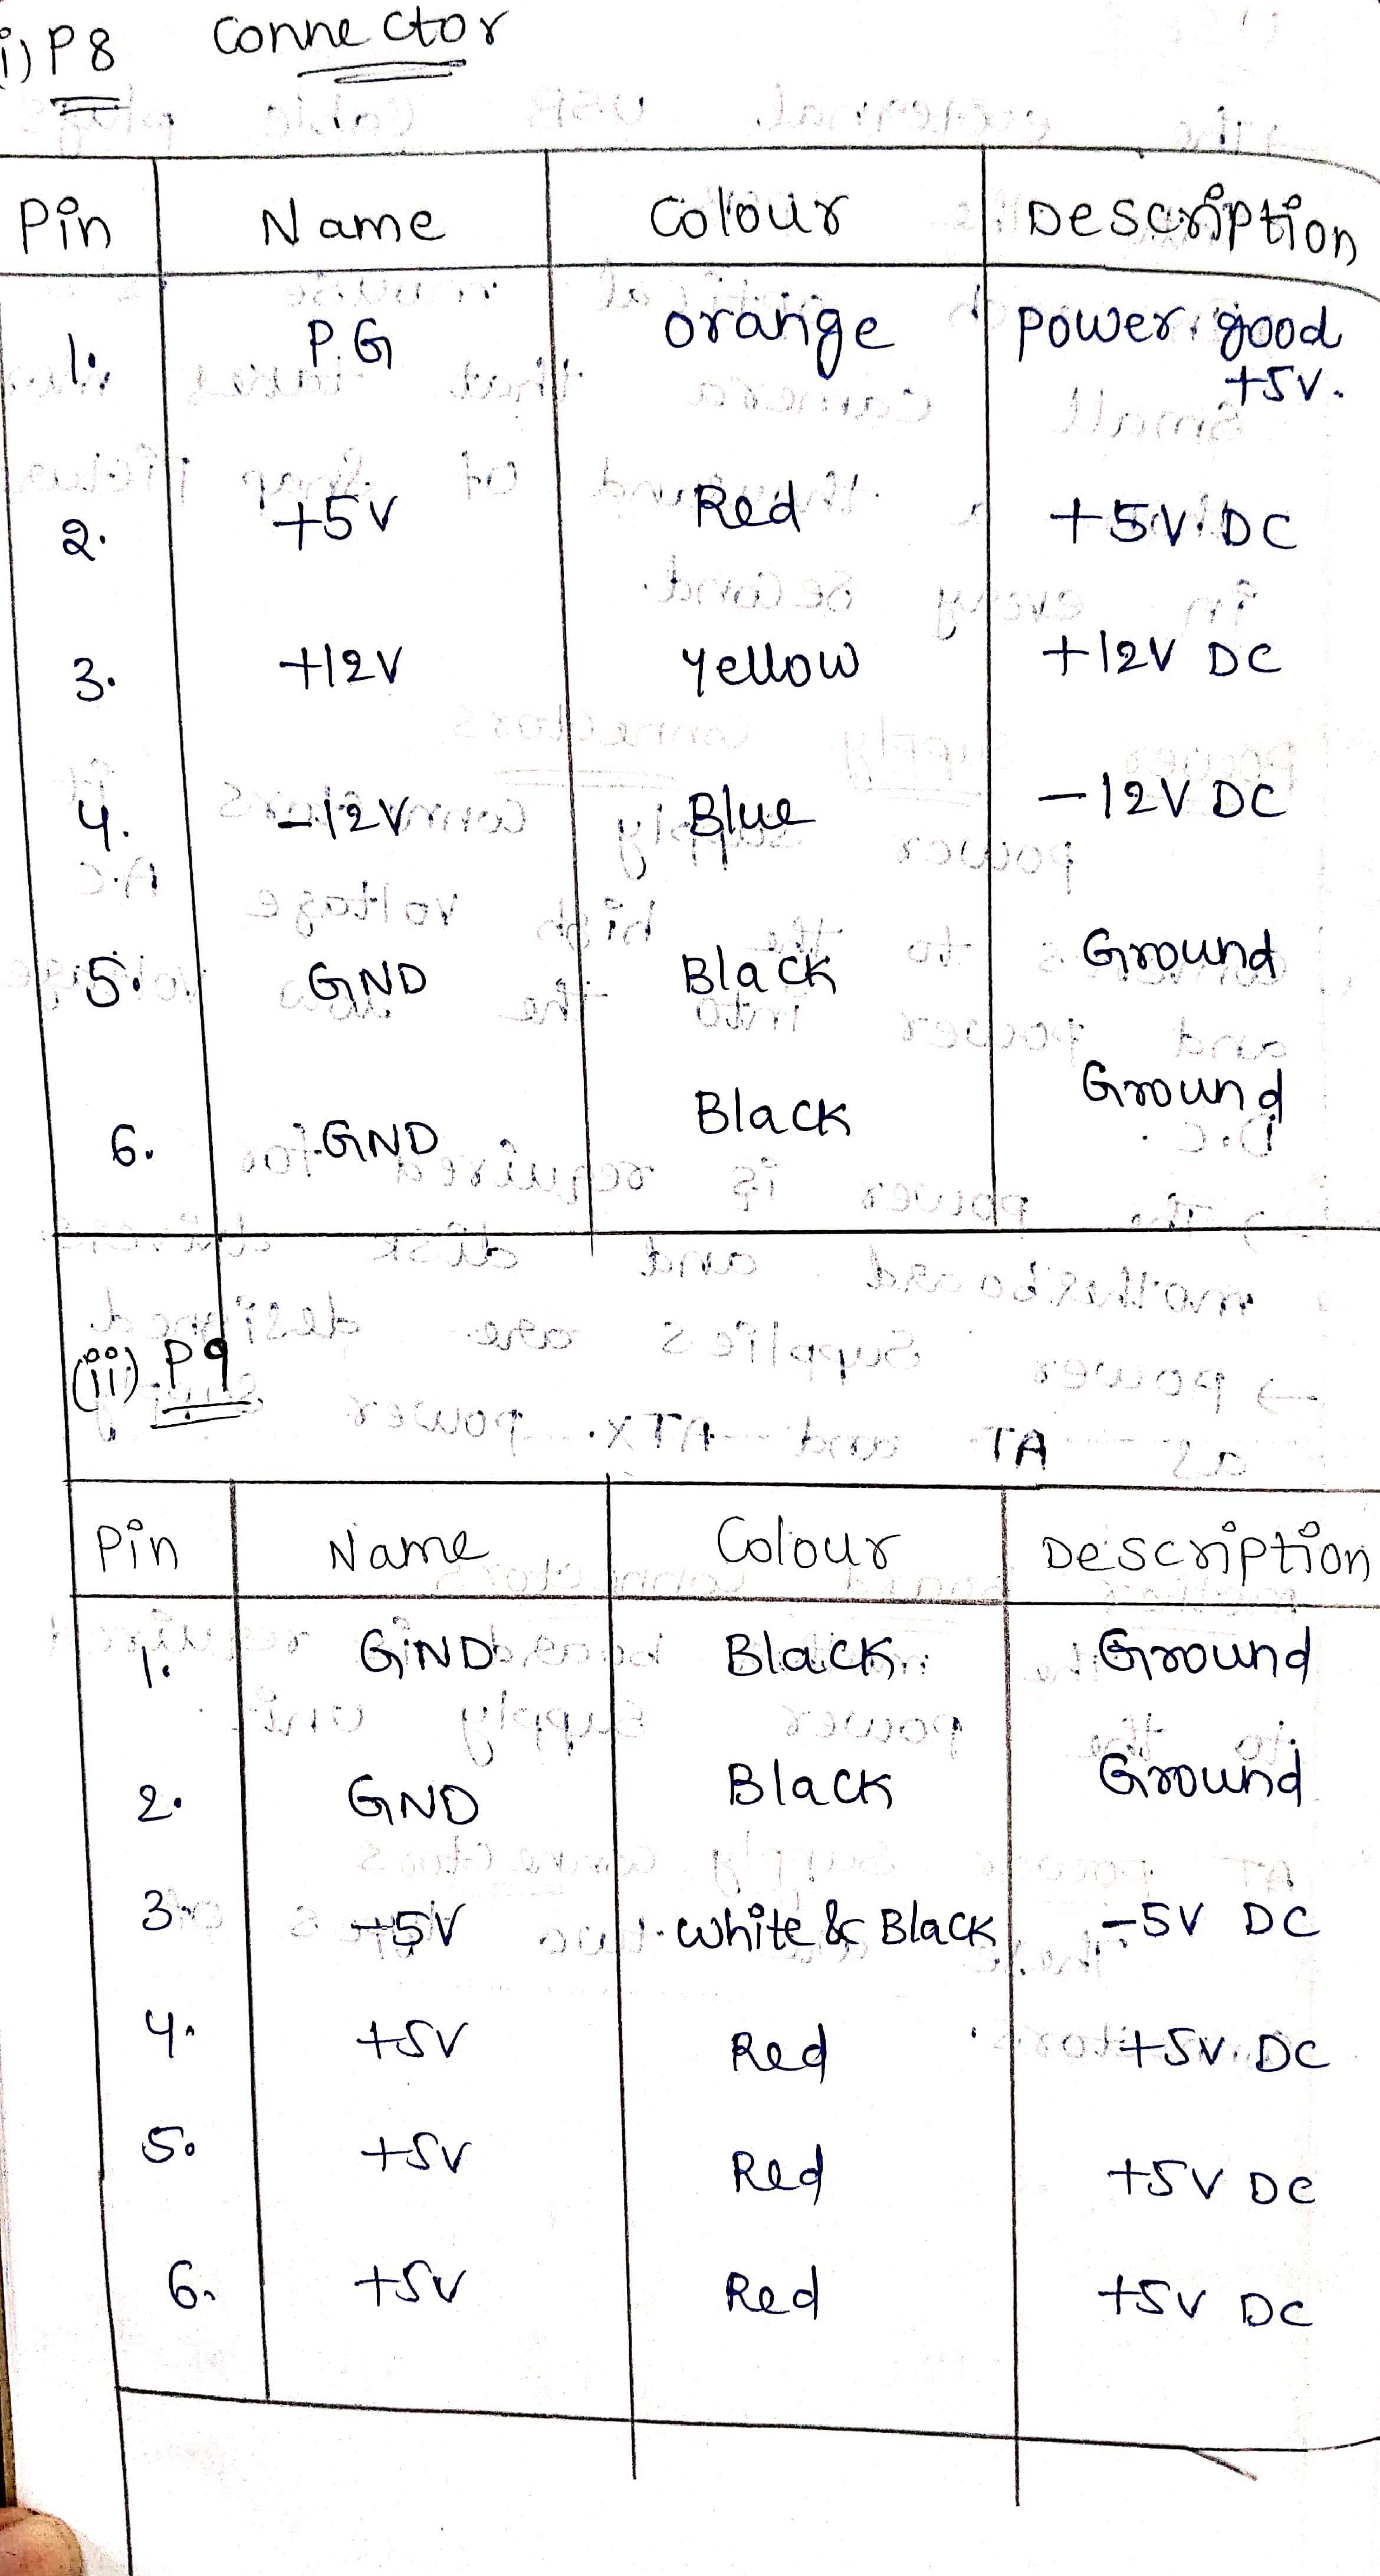 i) P8 Connector
Pin Name Colour Description
1. P.G orange power good
+5V.
2. +5V Red +5V DC
3. +12V Yellow +12V DC
4. -12V Blue -12V DC
5. GND Black Ground
6. GND Black Ground
(ii) P9
Pin Name Colour Description
1. GND Black Ground
2. GND Black Ground
3. -5V White & Black -5V DC
4. +5V Red +5V DC
5. +5V Red +5V DC
6. +5V Red +5V DC